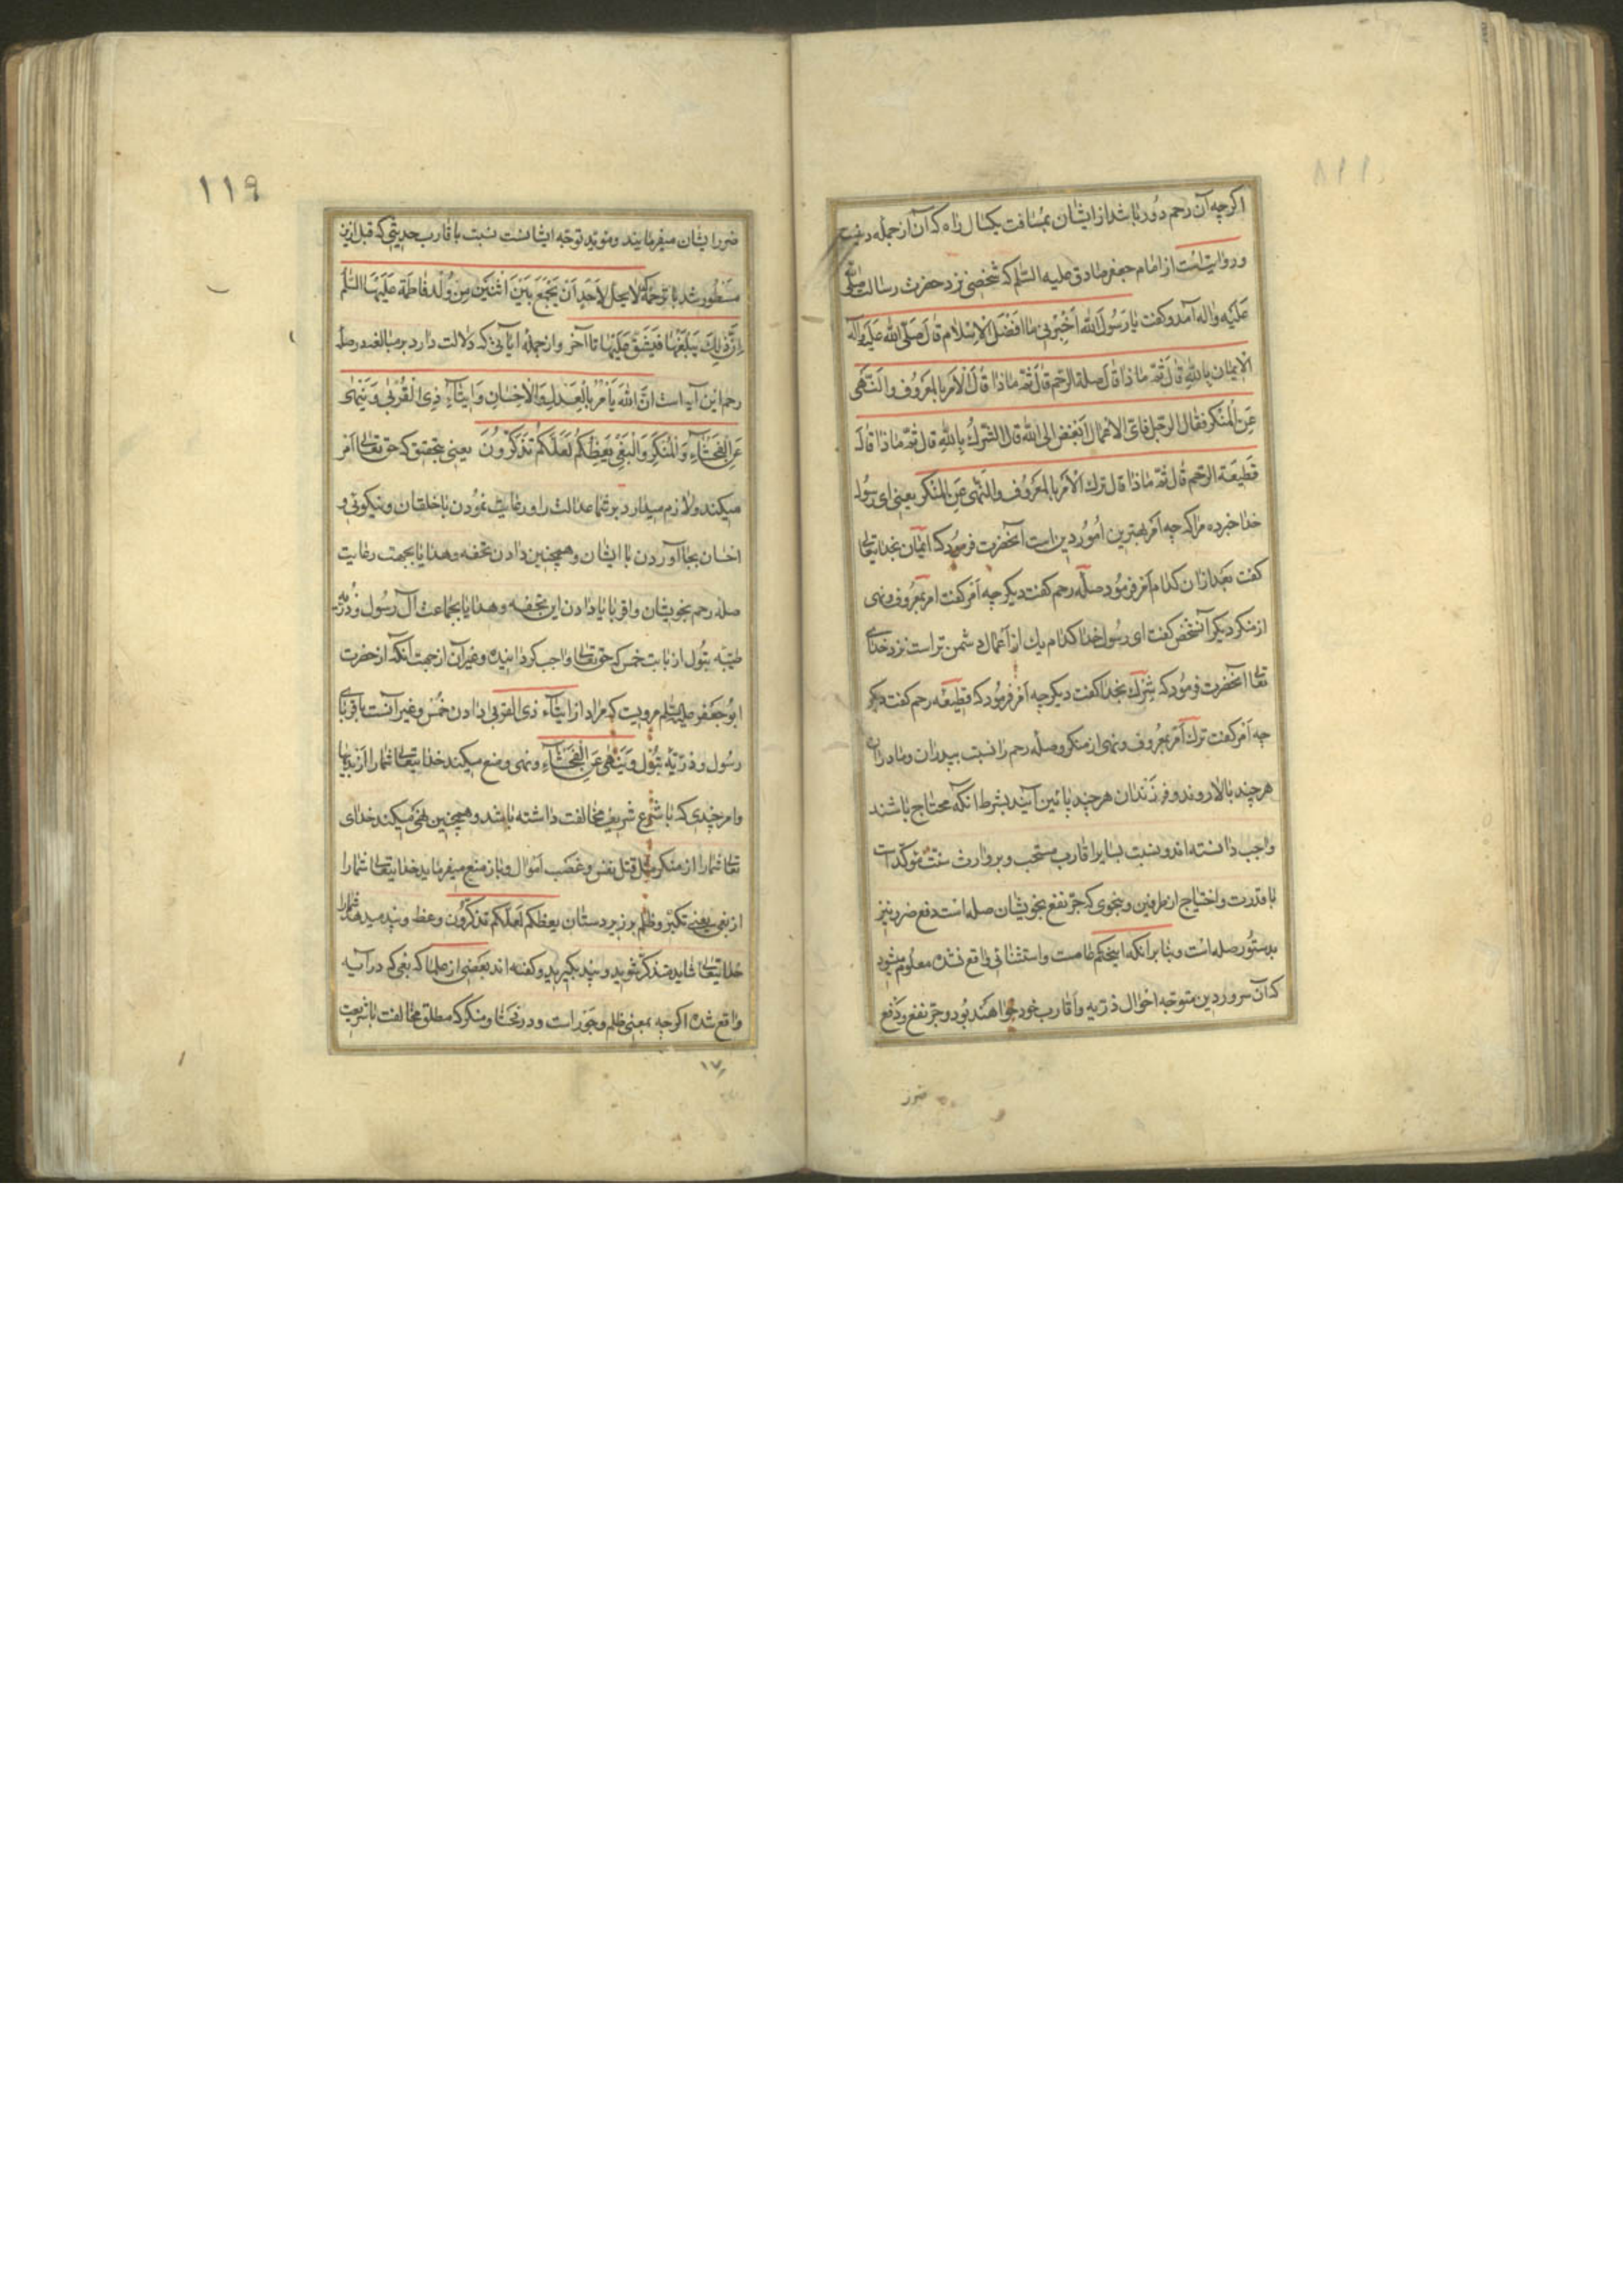 اگرچه آن رحم دور باشد از ایشان بمسافت یکسال راه که آن از جمله
و روایتست از امام جعفر صادق علیه السلم که شخصی نزد حضرت رسالت صلی الله
علیه و اله آمد و گفت یا رسول الله اخبرنی ما افضل الاسلام قال صلی الله علیه و اله
الایمان بالله قال ثمّ ماذا قال صلة الرّحم قال ثمّ ماذا قال الامر بالمعروف و النّهی
عن المنکر فقال الرجل فایّ الاعمال ابغض الی الله قال الشّرک بالله قال ثمّ ماذا قال
قطیعة الرّحم قال ثمّ ماذا قال ترک الامر بالمعروف و النّهی عن المنکر یعنی ای رسول
خدا خبر ده مرا که چه امر بهترین امور دین است آنحضرت فرمود که ایمان بخدایتعالی
گفت بعد از آن کدام امر فرمود صلهٔ رحم گفت دیگر چه امر گفت امر بمعروف و نهی
از منکر دیگر آنشخص گفت ای رسول خدا کدام یک از اعمال دشمن تر است نزد خدای
تعالی آنحضرت فرمود که شرک بخدا گفت دیگر چه امر فرمود که قطیعهٔ رحم گفت دیگر
چه امر گفت ترک امر بمعروف و نهی از منکر و صلهٔ رحم را نسبت بپدران و مادران
هرچند بالا روند و فرزندان هرچند پائین آیند بشرط انکه محتاج باشند
واجب دانسته اند و نسبت بسایر اقارب مستحب و بر وارث سنّت مؤکّد است
با قدرت و احتیاج از طرفین و بنحوی که جرّ نفع بخویشان صله است دفع ضرر نیز
بدستور صله است و بنا بر انکه اینحکم عامست و استثنائی واقع نشده معلوم میشود
که آن سرور دین متوجّه احوال ذرّیه و اقارب خود خواهند بود و جرّ نفع و دفع
ضرر
١١٩
ضرر ایشان میفرمایند و مؤید توجّه ایشانست نسبت باقارب حدیثی که قبل ازین
مسطور شد با ترجمه که لا یحل لاحد ان یجمع بین اثنتین من ولد فاطمة علیها السلم
انّ ذلک یبلغها فیشقّ علیها تا آخر و از جملهٔ ایاتی که دلالت دارد بر مبالغه در صلهٔ
رحم این آیه است انّ الله یأمر بالعدل و الاحسان و ایتاء ذی القربی و ینهی
عن الفحشاء و المنکر و البغی یعظکم لعلّکم تذکّرون یعنی بتحقیق که حق تعالی امر
میکند و لازم میدارد بر شما عدالت را و رعایت نمودن با خلقان و نیکوئی و
احسان بجا آوردن با ایشان و همچنین دادن تحفه و هدایا بجهت رعایت
صلهٔ رحم بخویشان و اقربا یا دادن این تحفه و هدایا بجماعت آل رسول و ذرّیهٔ
طیبّه بتول از بابت خمس که حق تعالی واجب گردانیده و غیر آن از جهت آنکه از حضرت
ابو جعفر علیه السلم مرویست که مراد از ایتاء ذی القربی دادن خمس و غیر آنست باقربای
رسول و ذرّیهٔ بتول و ینهی عن الفحشاء و نهی و منع میکند خدایتعالی شما را از بدیها
و امر چندی که با شرع شریف مخالفت داشته باشد و همچنین نهی میکند خدای
تعالی شما را از منکر مثل قتل نفس و غصب اموال و باز منع میفرماید خدایتعالی شما را
از بغی یعنی تکبّر و ظلم بر زیردستان یعظکم لعلّکم تذکّرون وعظ و پند میدهد شما را
خدایتعالی شاید متذکّر شوید و پند بگیرید و گفته اند بعضی از علما که بغی که در آیه
واقع شده اگرچه بمعنی ظلم و جور است و در فحشا و منکر که مطلق مخالفت با شریعت